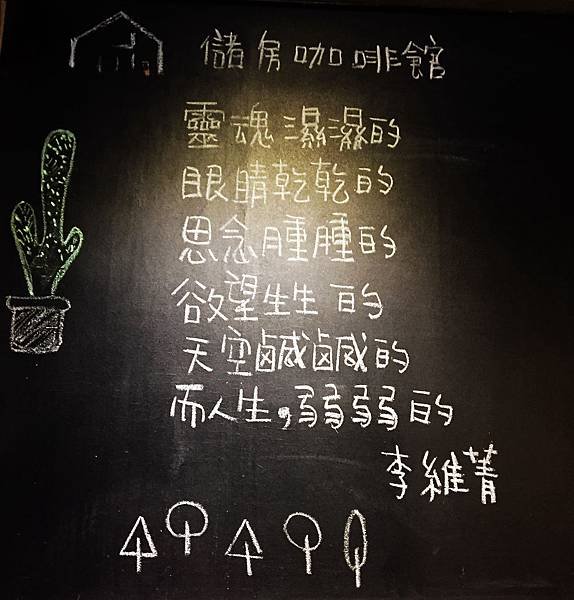 儲房咖啡館
靈魂濕濕的
眼睛乾乾的
思念腫腫的
欲望生生的
天空鹹鹹的
而人生，弱弱的
李維菁